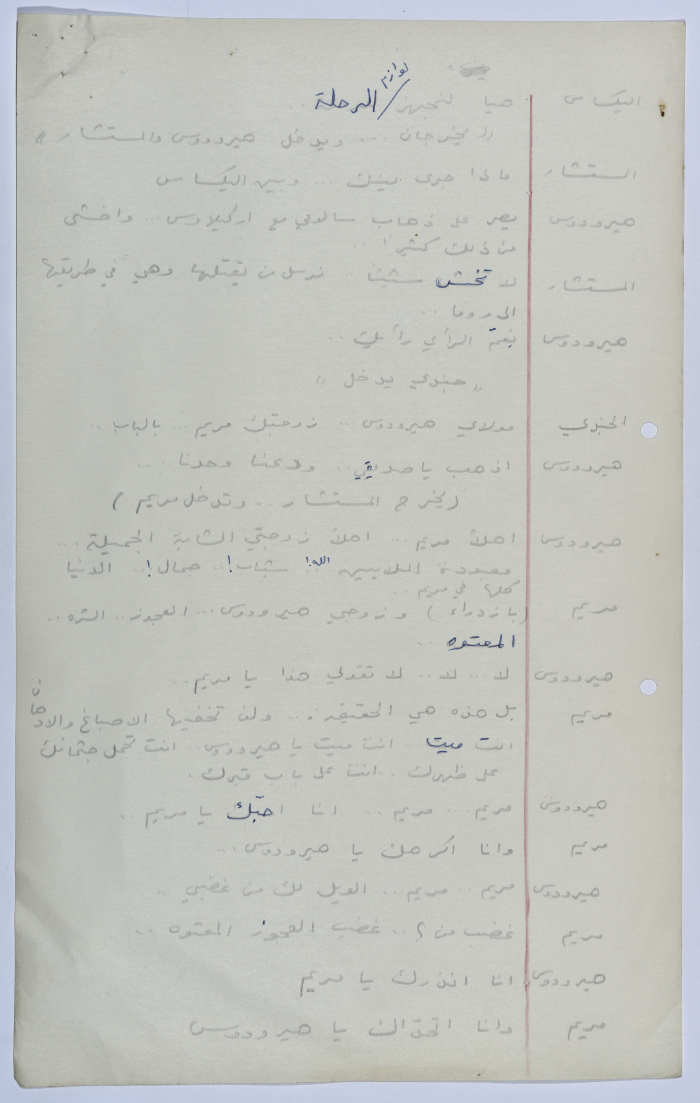 لوازم
اليكساس هيا لنجهز / الرحلة ..
" يخرجان ... ويدخل هيرودوس والمستشار "
المستشار ماذا جرى بينك ... وبين اليكساس
هيرودوس يصر على ذهاب سالومي مع اركيلاوس ... واخشى
من ذلك كثيرا ..
المستشار لا تخش شيئا .. نرسل من يقتلها وهي في طريقها
الى روما ..
هيرودوس نعمَ الرأي رأيك ..
" جندي يدخل "
الجندي مولاي هيرودوس ... زوجتك مريم ... بالباب ..
هيرودوس اذهب يا صديقي .. ودعنا وحدنا ...
( يخرج المستشار .. وتدخل مريم )
هيرودوس اهلاً مريم ... اهلاً زوجتي الشابة الجميلة ...
معبودة الملايين .. الله! شباب! .. جمال! .. الدنيا
كلها في مريم ..
مريم ( بازدراء ) وزوجي هيرودوس ... العجوز .. الشره ..
المعتوه ..
هيرودوس لا ... لا .. لا تقولي هذا يا مريم ..
مريم بل هذه هي الحقيقة ... ولن تخفيها الاصباغ والادهان
انت ميتا .. انت ميت يا هيرودوس .. انت تحمل جثمانك
على ظهرك .. انت على باب قبرك .
هيرودوس مريم ... مريم ... انا احبّك يا مريم ..
مريم وانا اكرهك يا هيرودوس ...
هيرودوس مريم .. مريم .. الويل لك من غضبي ..
مريم غضب من ؟ .. غضب العجوز المعتوه ..
هيرودوس انا انذرك يا مريم
مريم وانا اتحدّاك يا هيرودوس